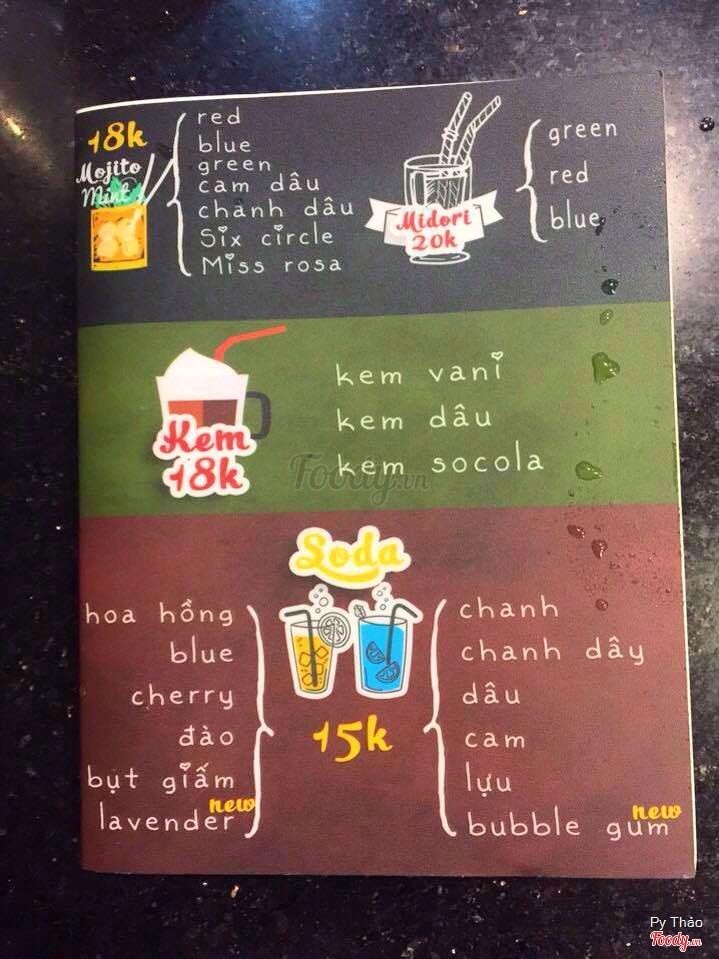 18k
Mojito
Mint
red
blue
green
cam dâu
chanh dâu
Six circle
Miss rosa
Midori
20k
green
red
blue
Kem
18k
kem vani
kem dâu
kem socola
Foody.vn
Soda
15k
hoa hồng
blue
cherry
đào
bụt giấm
lavender new
chanh
chanh dây
dâu
cam
lựu
bubble gum new
Py Thảo
Foody.vn